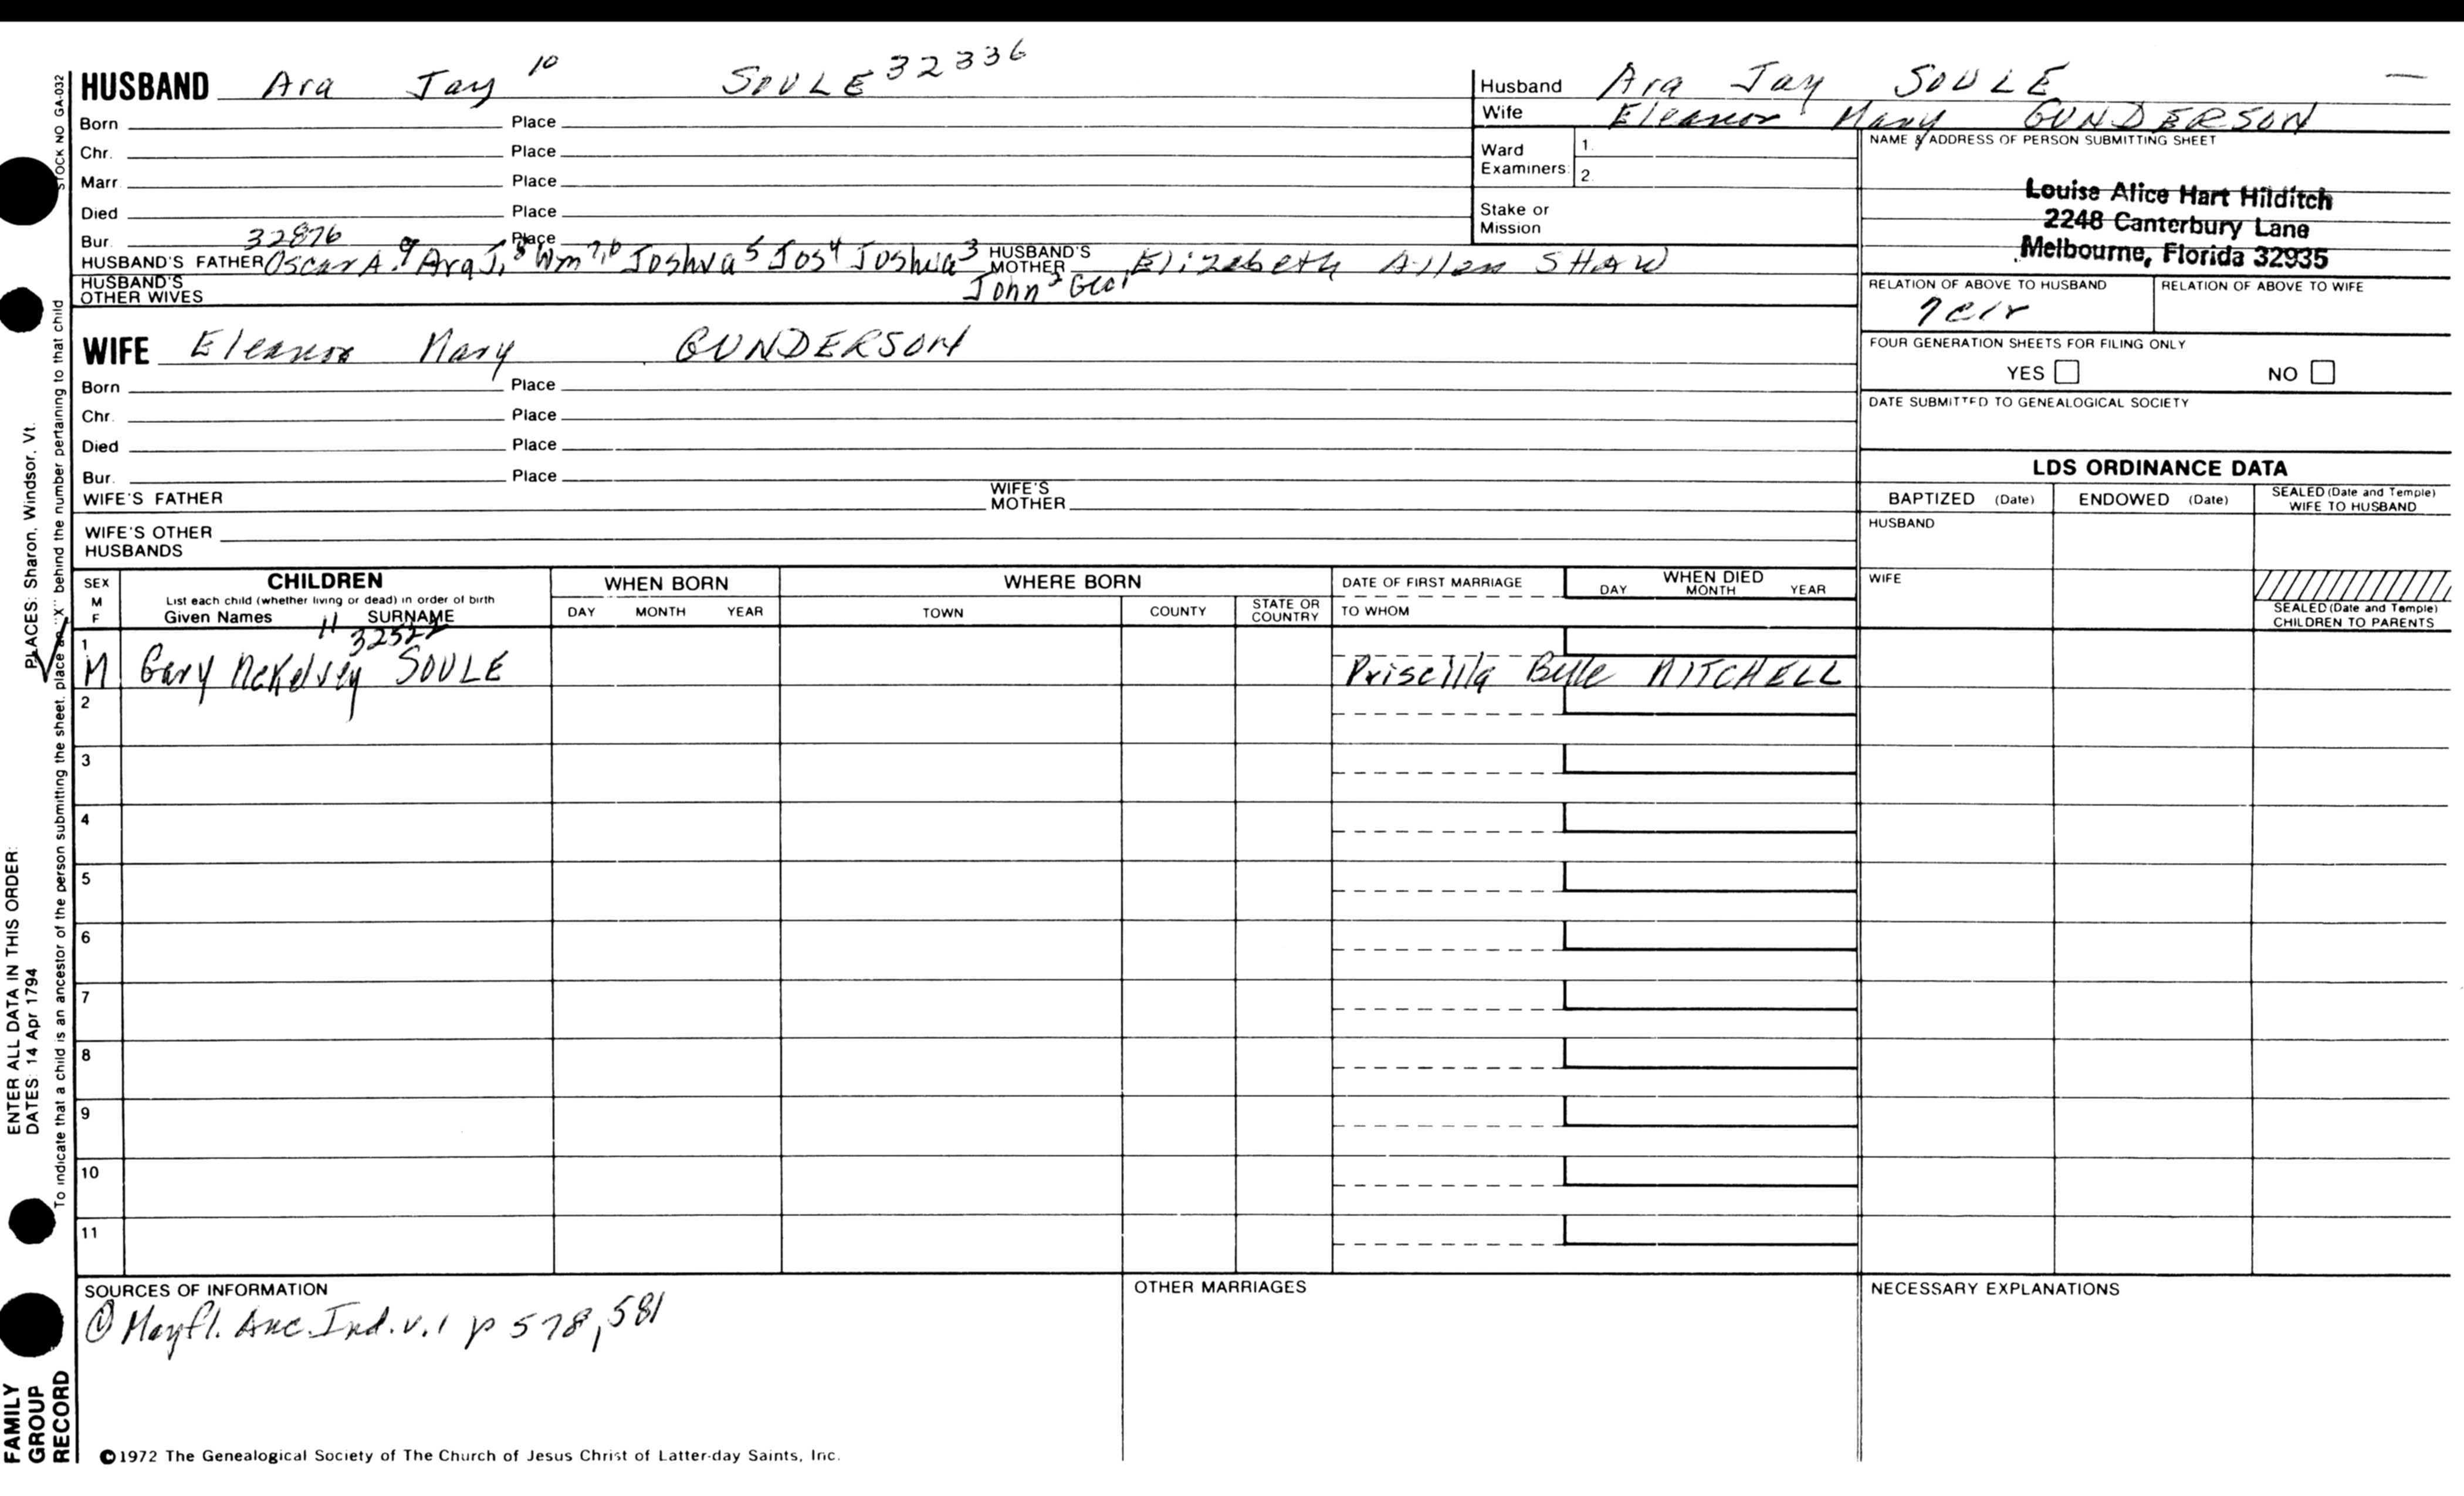 HUSBAND Ara Jay 10 SOULE 32336
Born Place
Chr. Place
Marr. Place
Died Place
Bur. Place
32876
HUSBAND'S FATHER Oscar A.9 Ara J,8 Wm7,6 Joshua5 Jos4 Joshua3 HUSBAND'S MOTHER Elizabeth Allen SHAW
John2 Geo1
HUSBAND'S OTHER WIVES
WIFE Eleanor Mary GUNDERSON
Born Place
Chr. Place
Died Place
Bur. Place
WIFE'S FATHER WIFE'S MOTHER
WIFE'S OTHER HUSBANDS
Husband Ara Jay SOULE —
Wife Eleanor Mary GUNDERSON
Ward Examiners: 1. 2.
Stake or Mission
NAME & ADDRESS OF PERSON SUBMITTING SHEET
Louise Alice Hart Hilditch
2248 Canterbury Lane
Melbourne, Florida 32935
RELATION OF ABOVE TO HUSBAND RELATION OF ABOVE TO WIFE
7c1r
FOUR GENERATION SHEETS FOR FILING ONLY
YES NO
DATE SUBMITTED TO GENEALOGICAL SOCIETY
LDS ORDINANCE DATA
BAPTIZED (Date) ENDOWED (Date) SEALED (Date and Temple) WIFE TO HUSBAND
HUSBAND
WIFE
SEALED (Date and Temple) CHILDREN TO PARENTS
SEX M F CHILDREN WHEN BORN WHERE BORN DATE OF FIRST MARRIAGE WHEN DIED
List each child (whether living or dead) in order of birth
Given Names SURNAME DAY MONTH YEAR TOWN COUNTY STATE OR COUNTRY TO WHOM DAY MONTH YEAR
11 32522
1 M Gary McKelvey SOULE Priscilla Belle MITCHELL
2
3
4
5
6
7
8
9
10
11
SOURCES OF INFORMATION OTHER MARRIAGES NECESSARY EXPLANATIONS
① Mayfl. Anc. Ind. v.1 p 578, 581
©1972 The Genealogical Society of The Church of Jesus Christ of Latter-day Saints, Inc.
STOCK NO GA-032
To indicate that a child is an ancestor of the person submitting the sheet, place an "X" behind the number pertaining to that child
PLACES: Sharon, Windsor, Vt.
ENTER ALL DATA IN THIS ORDER:
DATES: 14 Apr 1794
FAMILY
GROUP
RECORD